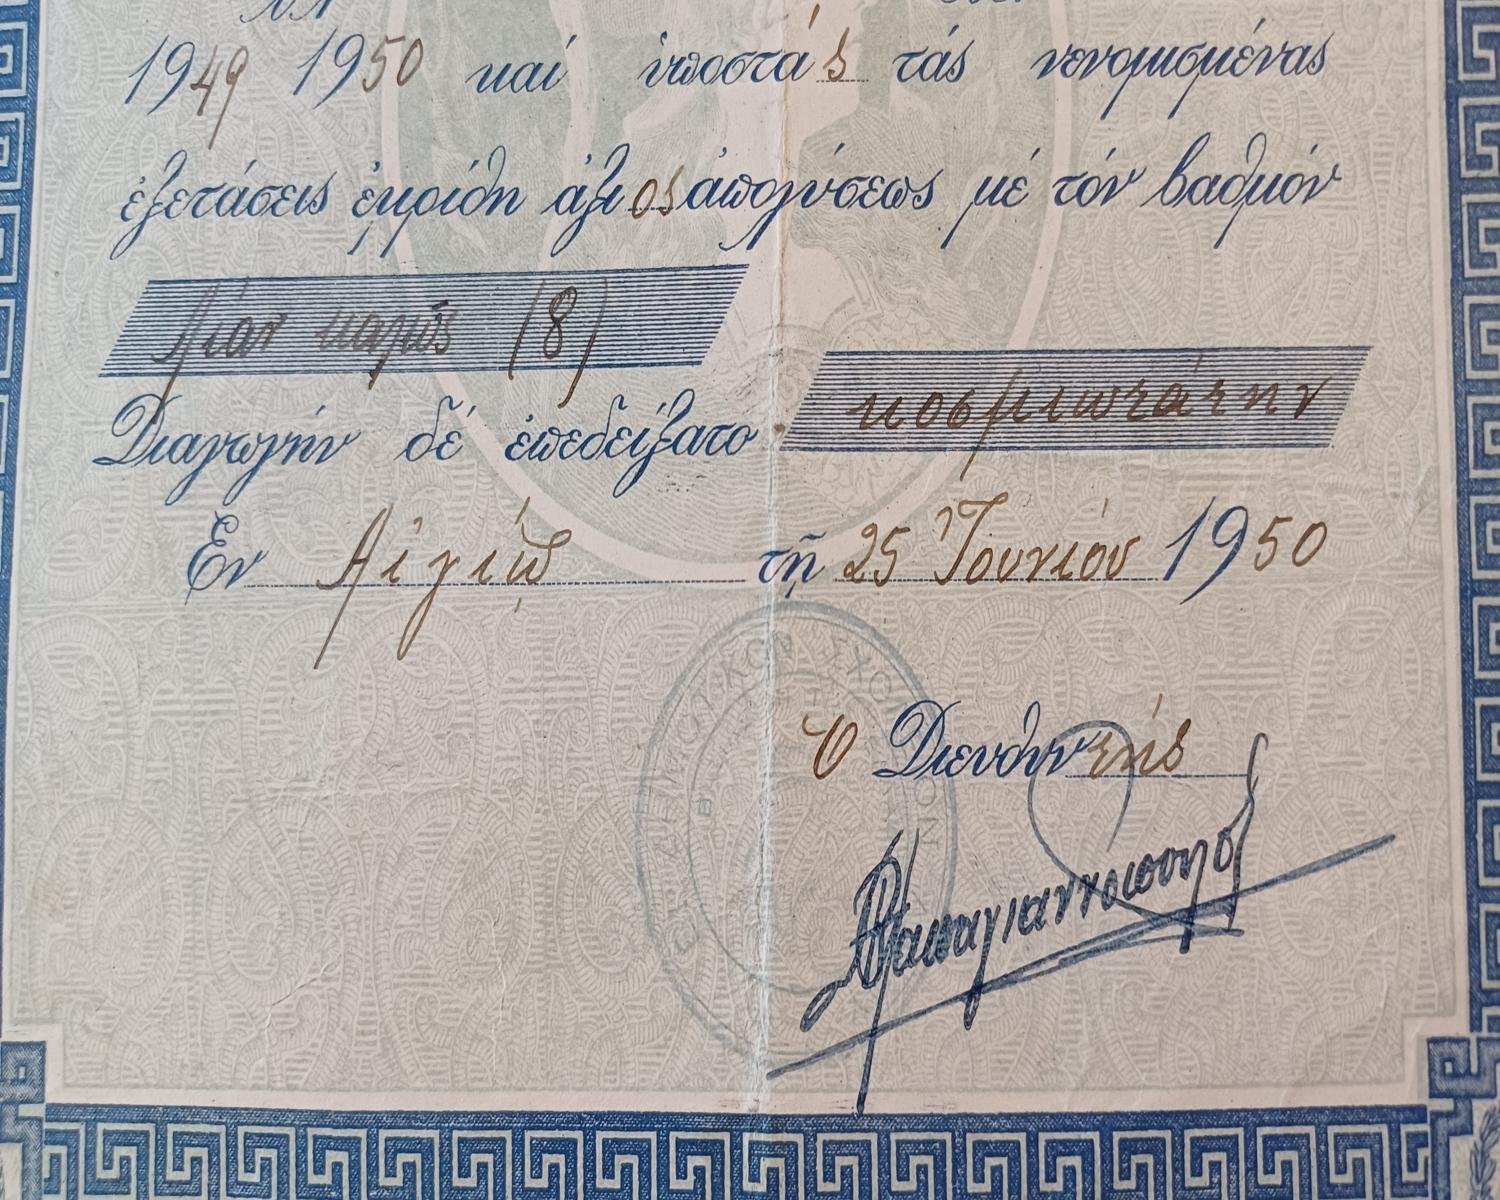 1949 1950 καί ὑποστάς τάς νενομισμένας
ἐξετάσεις ἐκρίθη ἄξιος ἀπολύσεως μέ τόν βαθμόν
Λίαν καλῶς (8)
Διαγωγήν δέ ἐπεδείξατο κοσμιωτάτην
Ἐν Αἰγίῳ τῇ 25 Ἰουνίου 1950
Ὁ Διευθυντής
Παπαγιαννόπουλος
ΔΗΜΟΤΙΚΟΝ ΣΧΟΛΕΙΟΝ